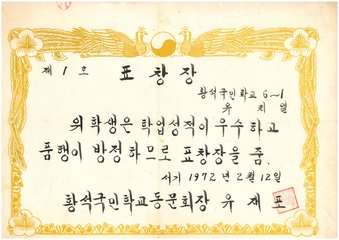 제 1 호 표창장
황석국민학교 6-1
유 지 열
위 학생은 학업성적이 우수하고
품행이 방정하므로 표창장을 줌.
서기 1972년 2월 12일
황석국민학교동문회장 유 재